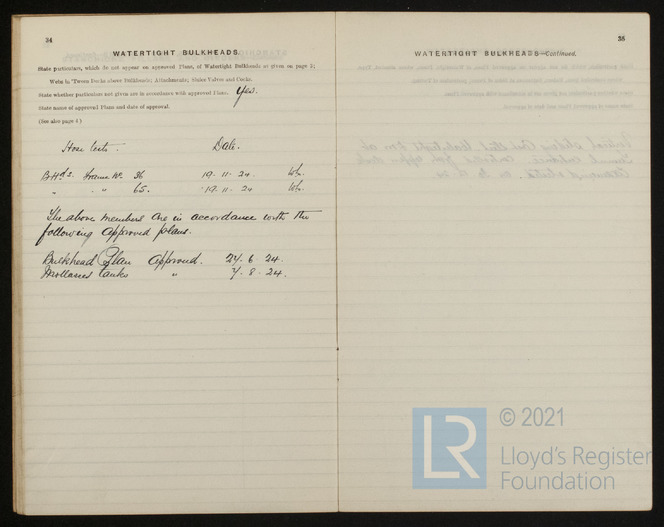 34
WATERTIGHT BULKHEADS.
State particulars, which do not appear on approved Plans, of Watertight Bulkheads or given on page 5;
Webs in 'Tween Decks above Bulkheads; Attachments; Sluice Valves and Cocks.
State whether particulars not given are in accordance with approved Plans. Yes.
State name of approved Plans and date of approval.
(See also page 4.)
Hose tests. Date.
BHds. Frame No. 36 19.11.24.
" " " 65. 19.11.24
The above members are in accordance with the
following approved plans.
Bulkhead Plan approved. 24.6.24.
Mollasses tanks " 7.8.24.
35
WATERTIGHT BULKHEADS—Continued.
LR
© 2021
Lloyd's Register
Foundation